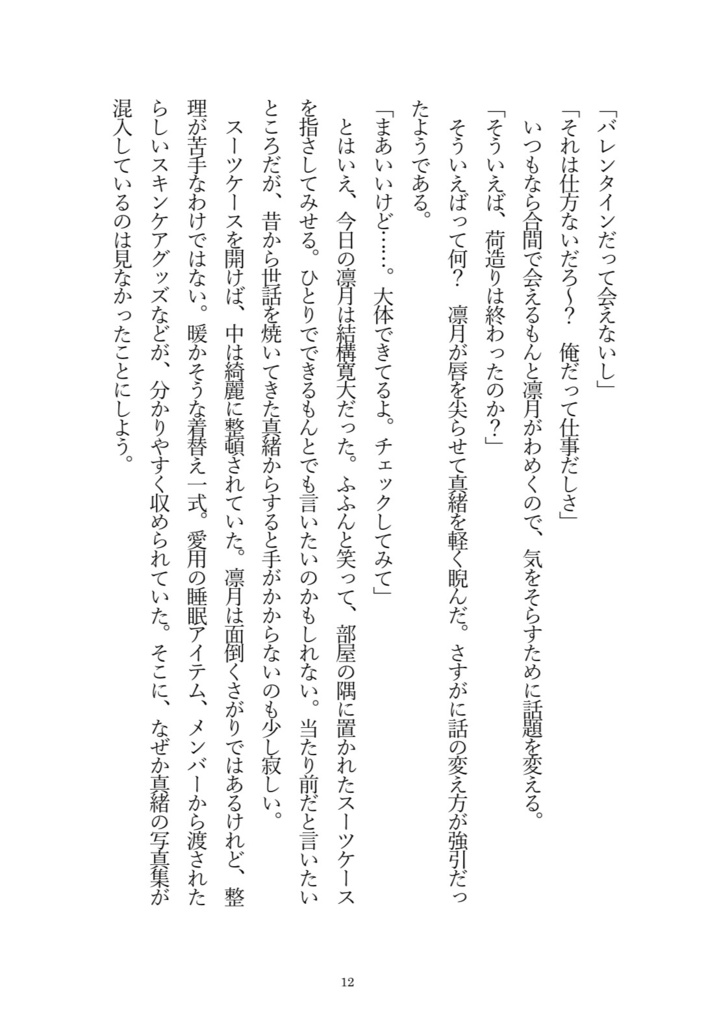 「バレンタインだって会えないし」
「それは仕方ないだろ〜？　俺だって仕事だしさ」
　いつもなら合間で会えるもんと凛月がわめくので、気をそらすために話題を変える。
「そういえば、荷造りは終わったのか？」
　そういえばって何？　凛月が唇を尖らせて真緒を軽く睨んだ。さすがに話の変え方が強引だっ
たようである。
「まあいいけど……。大体できてるよ。チェックしてみて」
　とはいえ、今日の凛月は結構寛大だった。ふふんと笑って、部屋の隅に置かれたスーツケース
を指さしてみせる。ひとりでできるもんとでも言いたいのかもしれない。当たり前だと言いたい
ところだが、昔から世話を焼いてきた真緒からすると手がかからないのも少し寂しい。
　スーツケースを開けば、中は綺麗に整頓されていた。凛月は面倒くさがりではあるけれど、整
理が苦手なわけではない。暖かそうな着替え一式。愛用の睡眠アイテム、メンバーから渡された
らしいスキンケアグッズなどが、分かりやすく収められていた。そこに、なぜか真緒の写真集が
混入しているのは見なかったことにしよう。
12